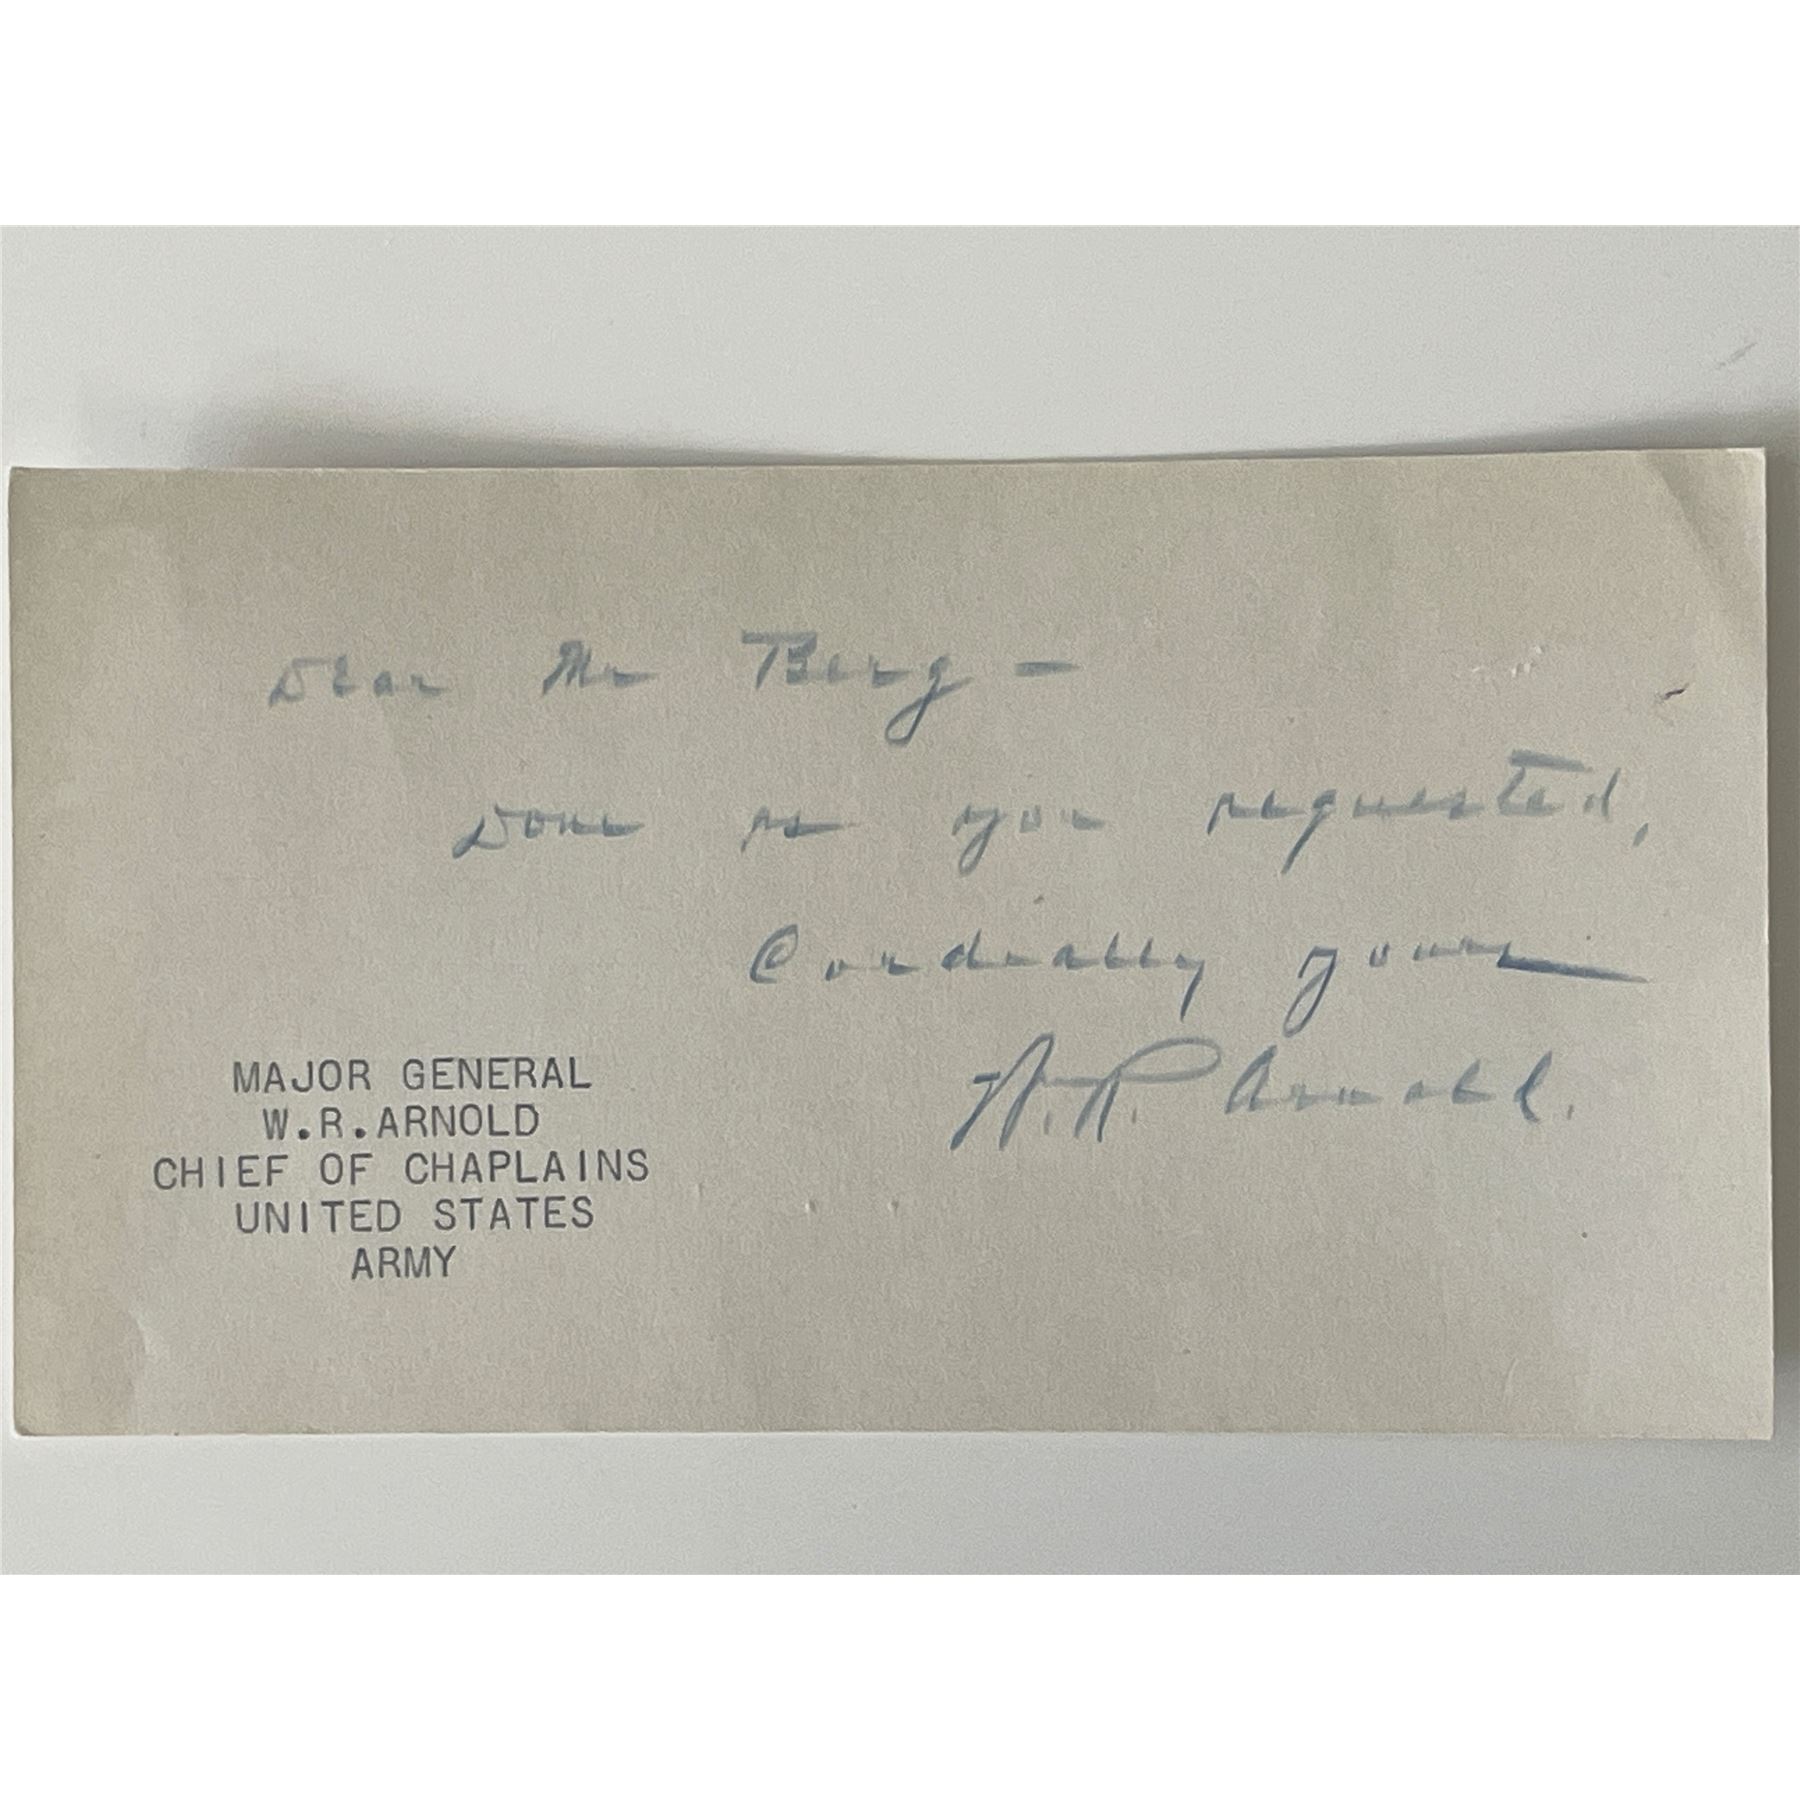 Dear Mr Berg —
Done as you requested,
Cordially yours
W.R. Arnold.
MAJOR GENERAL
W.R.ARNOLD
CHIEF OF CHAPLAINS
UNITED STATES
ARMY